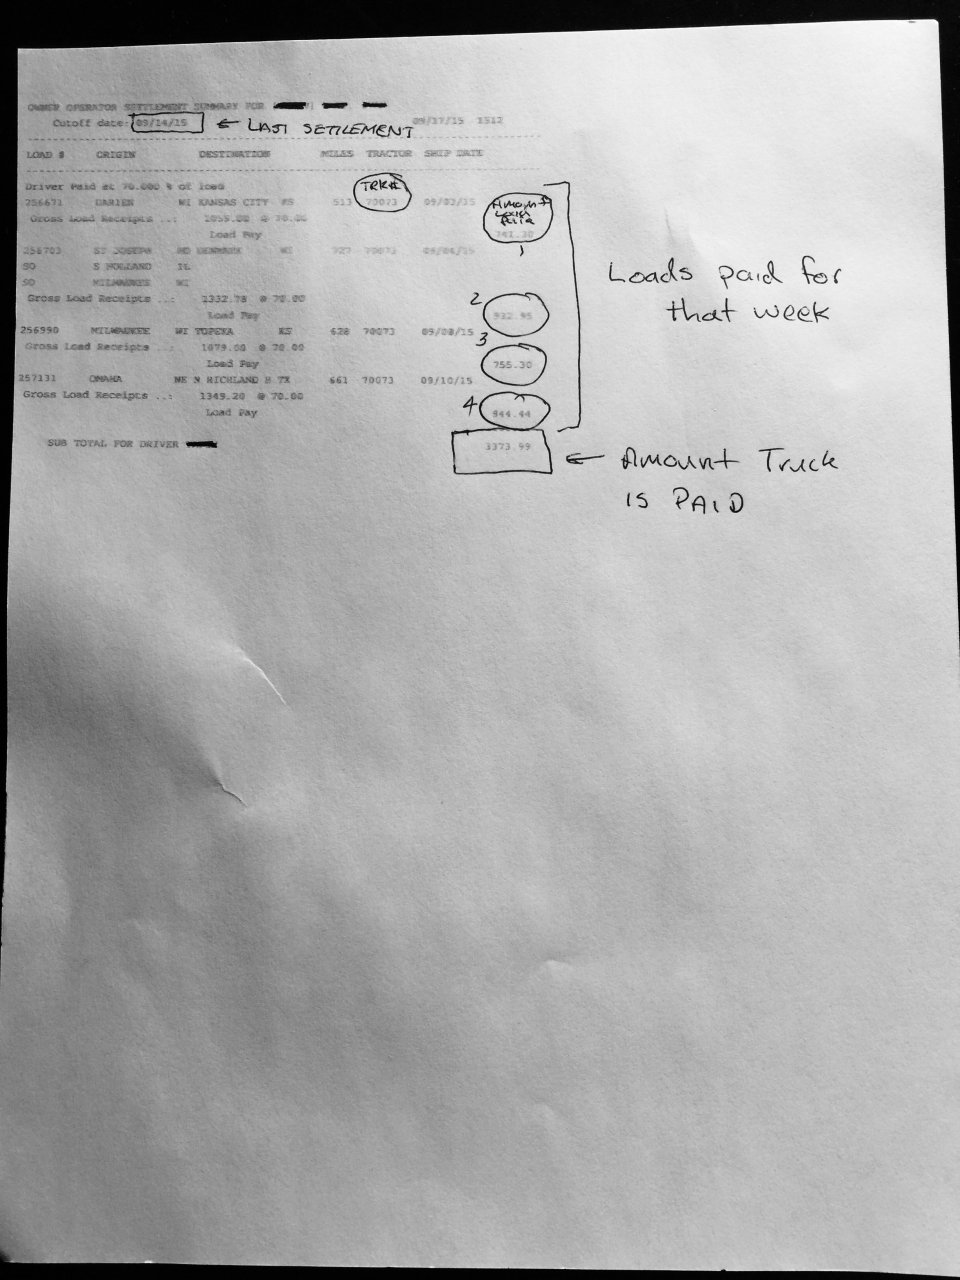 OWNER OPERATOR SETTLEMENT SUMMARY FOR
Cutoff date: 09/14/15 ← LAST SETTLEMENT 09/17/15 1512
LOAD # ORIGIN DESTINATION MILES TRACTOR SHIP DATE
Driver Paid at 70.000 % of load TRK#
256671 DARIEN WI KANSAS CITY KS 513 70073 09/03/15 Amount
Gross Load Receipts ..: @ 70.00
Load Pay 741.30
1
256703 ST JOSEPH MO DENMARK WI 727 70073
SO S HOLLAND IL
SO MILWAUKEE WI
Loads paid for
that week
Gross Load Receipts ..: 1332.78 @ 70.00
2
Load Pay 932.95
256990 MILWAUKEE WI TOPEKA KS 628 70073 09/08/15
3
Gross Load Receipts ..: 1079.00 @ 70.00
Load Pay 755.30
257131 OMAHA NE N RICHLAND H TX 661 70073 09/10/15
Gross Load Receipts ..: 1349.20 @ 70.00
4
Load Pay 944.44
SUB TOTAL FOR DRIVER 3373.99
← Amount Truck
IS PAID